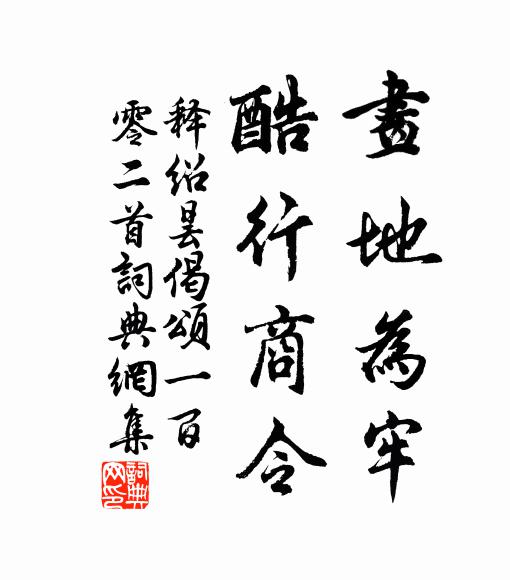 畫地為牢
酷行商令
释紹曇偈頌一百
零二首詞典網集
詞典网印